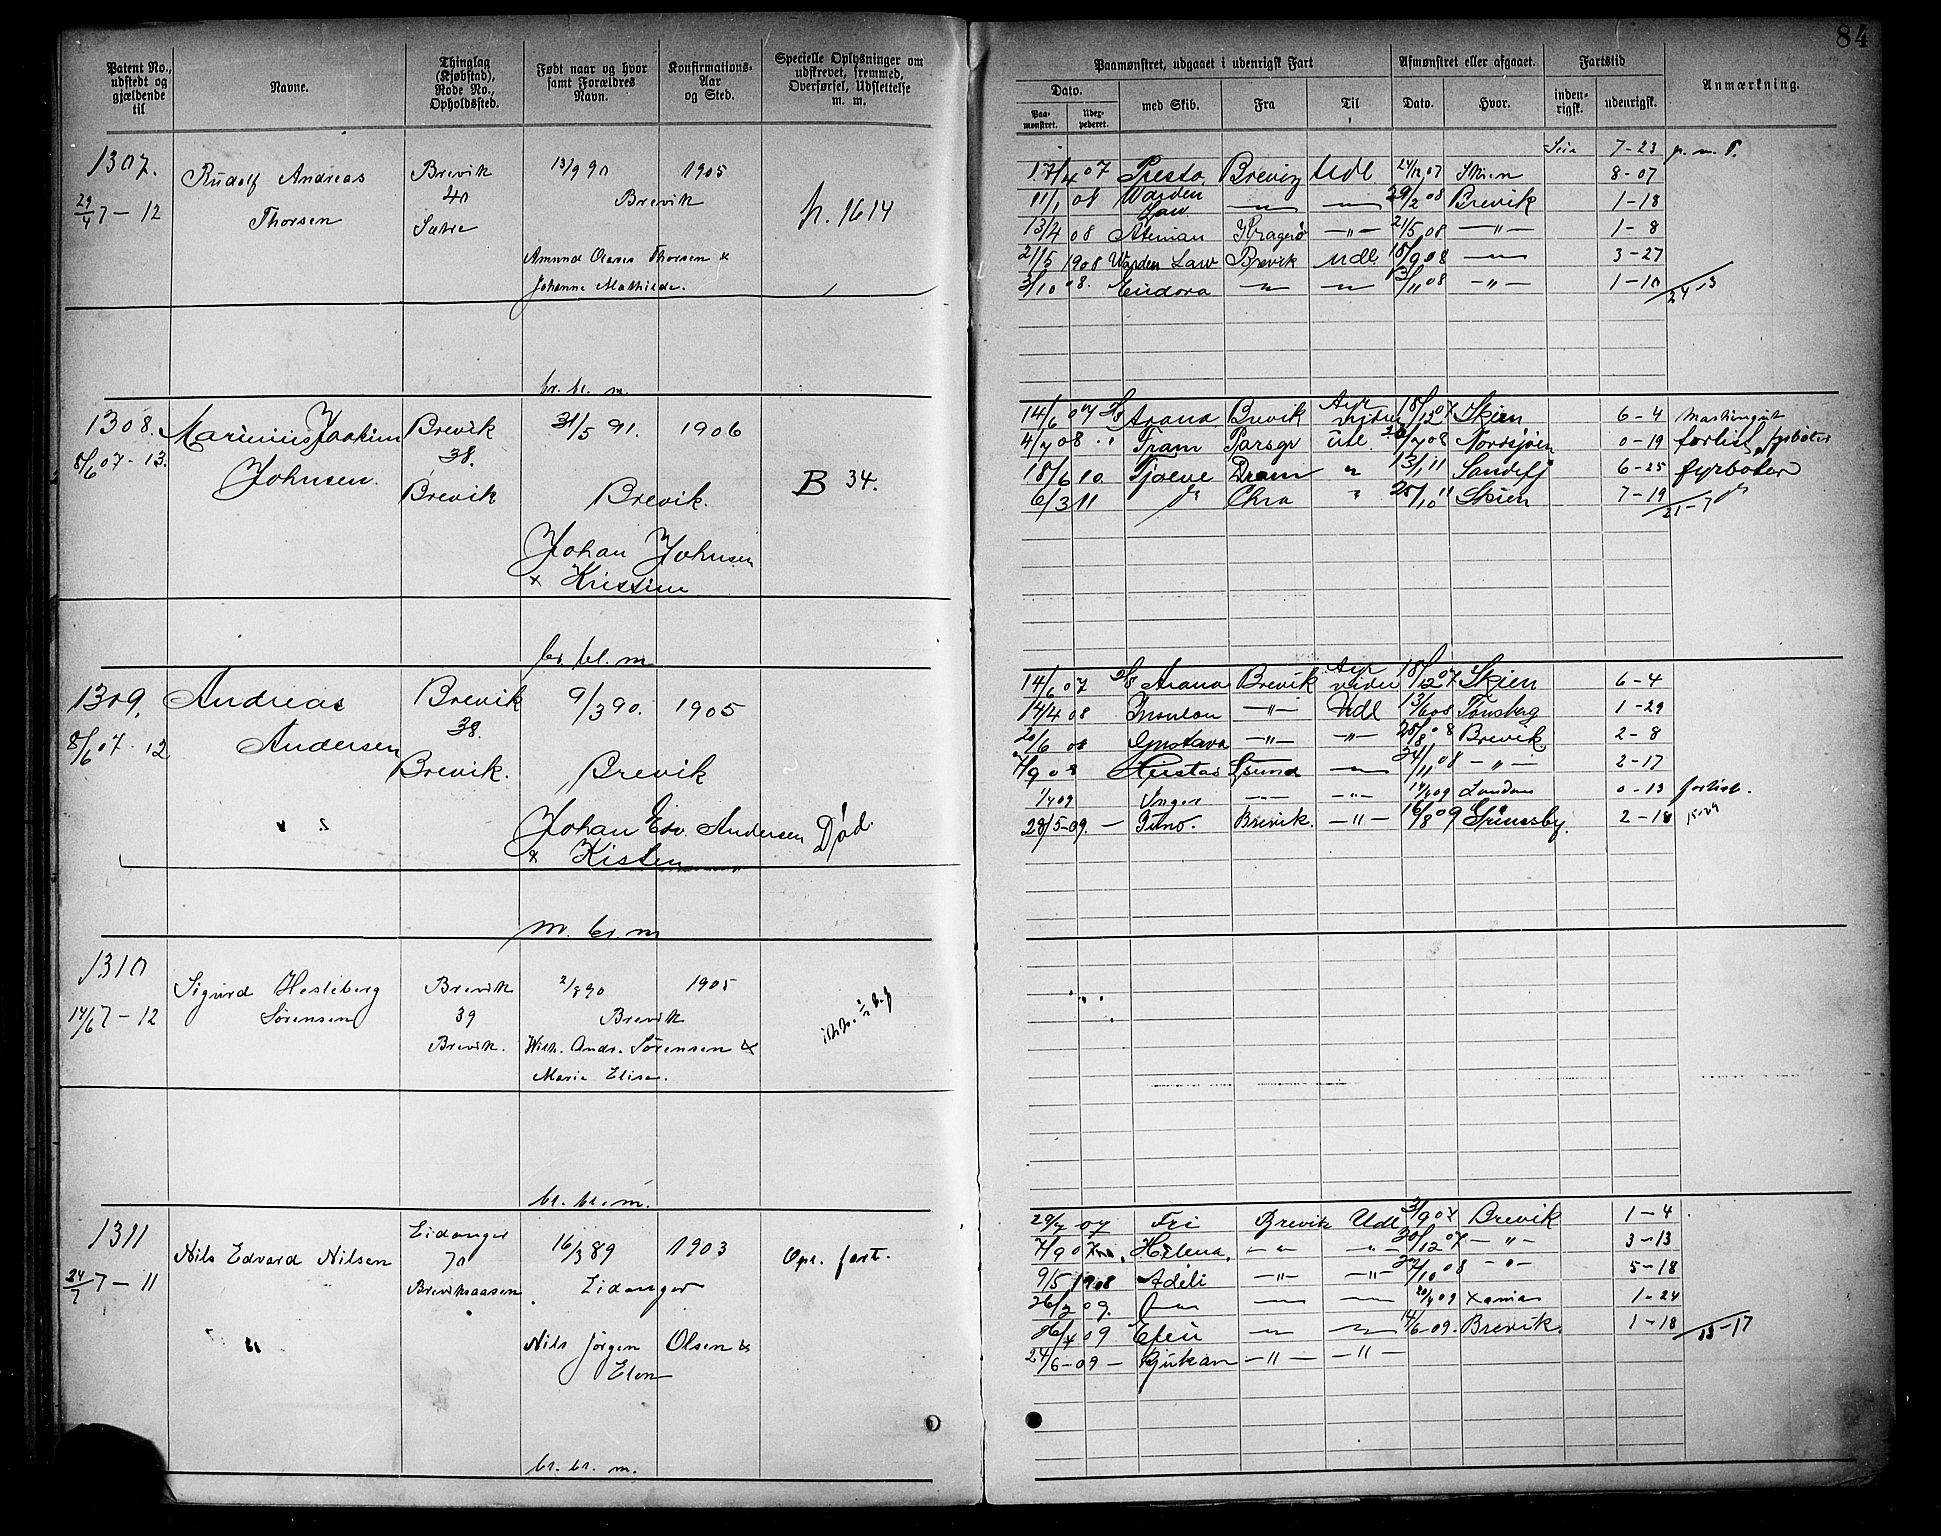 84
Patent No., udstedt og gjældende til
Navne.
Thinglag (Kjøbstad), Rode No., Opholdssted.
Født naar og hvor samt Forældres Navn.
Konfirmations-Aar og Sted.
Specielle Oplysninger om udskrevet, fremmed, Overførsel, Udslettelse m. m.
Paamønstret, udgaaet i udenrigsk Fart
Afmønstret eller afgaaet.
Fartstid
Anmærkning.
Dato.
Paa-mønstret.
Udex-pederet.
med Skib.
Fra
Til
Dato.
Hvor.
inden-rigsk.
udenrigsk.
1307.
29/4 7 - 12
Rudolf Andreas
Thorsen
Brevik
40
Satre
13/9 90
1905
Brevik
Amund Olaves Thorsen &
Johanne Mathilde.
fr. 1614
br. bl. m.
7-23
17/4 07 Presto Brevig Udl 24/12 07 Skien 8-07
11/1 08 Warden Law -"- -"- 29/2 08 Brevik 1-18
13/4 08 Kragerø -"- 21/5 08 -"- 1-8
21/5 1908 Warden Law Brevik Udl 18/9 08 -"- 3-27
3/10 08. Eudora -"- -"- 13/11 08 -"- 1-10
24-13
1308.
8/6 07 - 13.
Marinius Joakim
Johnsen.
Brevik
38.
Brevik
31/5 91.
1906
Brevik.
Johan Johnsen
& Kristine
B 34.
br. bl. m
14/6 07 D/S Arana Brevik Ayr videre 18/12 07 Skien 6-4
4/7 08 " Fram Porsgr utl. /7 08 Nordsjøen 0-19 forlist fyrbøter
18/6 10. Tjoeve Dram " 13/1 11 Sandefj 6-25 fyrbøter
6/3 11 do Chra " 25/10 11 Skien 7-19 do
21-7
1309.
8/6 07 - 12
Andreas
Andersen
Brevik
38.
Brevik.
9/3 90.
1905
Brevik
Johan Edv. Andersen
& Kisten
Død
m. br. m
14/6 07 D/S Arana Brevik Ayr vider 18/12 07 Skien 6-4
14/4 08 -"- Udl 13/6 08 Tønsberg 1-29
20/6 08 Gustava -"- -"- 28/8 08 Brevik 2-8
7/9 08 24/11 08 -"- 2-17
1/4 09 Inger -"- -"- 14/4 09 London 0-13 forlist.
28/5-09. - Juno. Brevik. -"- 16/8 09 Grimsby. 2-18
1310
14/6 7 - 12
Sigurd Hesleberg
Sørensen
Brevik
39
Brevik.
2/8 90
1905
Brevik
Wilh. Andr. Sørensen &
Marie Elise.
br. br. m.
1311
24/7 7 - 11
Nils Edvard Nilsen
Eidanger
70
Brevikaasen
16/3 89
1903
Eidanger
Nils Jørgen Olsen &
Elen
Opr. fart.
br. br. m.
29/7 07 Fri Brevik Udl 3/9 07 Brevik 1-4
7/9 07 Helena, -"- -"- 20/12 07 -"- 3-13
9/5 1908 Adili -"- -"- 27/10 08 -"- 5-18
26/2 09. -"- -"- 20/4 09 Xania 1-24
26/4 09 Efeu -"- -"- 14/6-09. Brevik. 1-18
13-17
24/6-09 - Rjukan -"- -"-